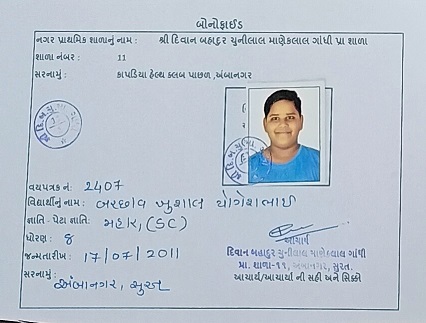 બોનોફાઈડ
નગર પ્રાથમિક શાળાનું નામ : શ્રી દિવાન બહાદુર ચુનીલાલ માણેકલાલ ગાંધી પ્રા શાળા
શાળા નંબર : 11
સરનામું : કાપડિયા હેલ્થ ક્લબ પાછળ ,અંબાનગર
વયપત્રક નં: 2407
વિદ્યાર્થીનું નામ: બરછાવ ખુશાલ યોગેશભાઈ
જ્ઞાતિ - પેટા જ્ઞાતિ: મહાર, (SC)
ધોરણ : 8
જન્મતારીખ : 17/07/2011
સરનામું : અંબાનગર, સુરત
આચાર્ય
દિવાન બહાદુર ચુનીલાલ માણેકલાલ ગાંધી
પ્રા. શાળા-૧૧, અંબાનગર, સુરત.
આચાર્ય/આચાર્યા ની સહી અને સિક્કો